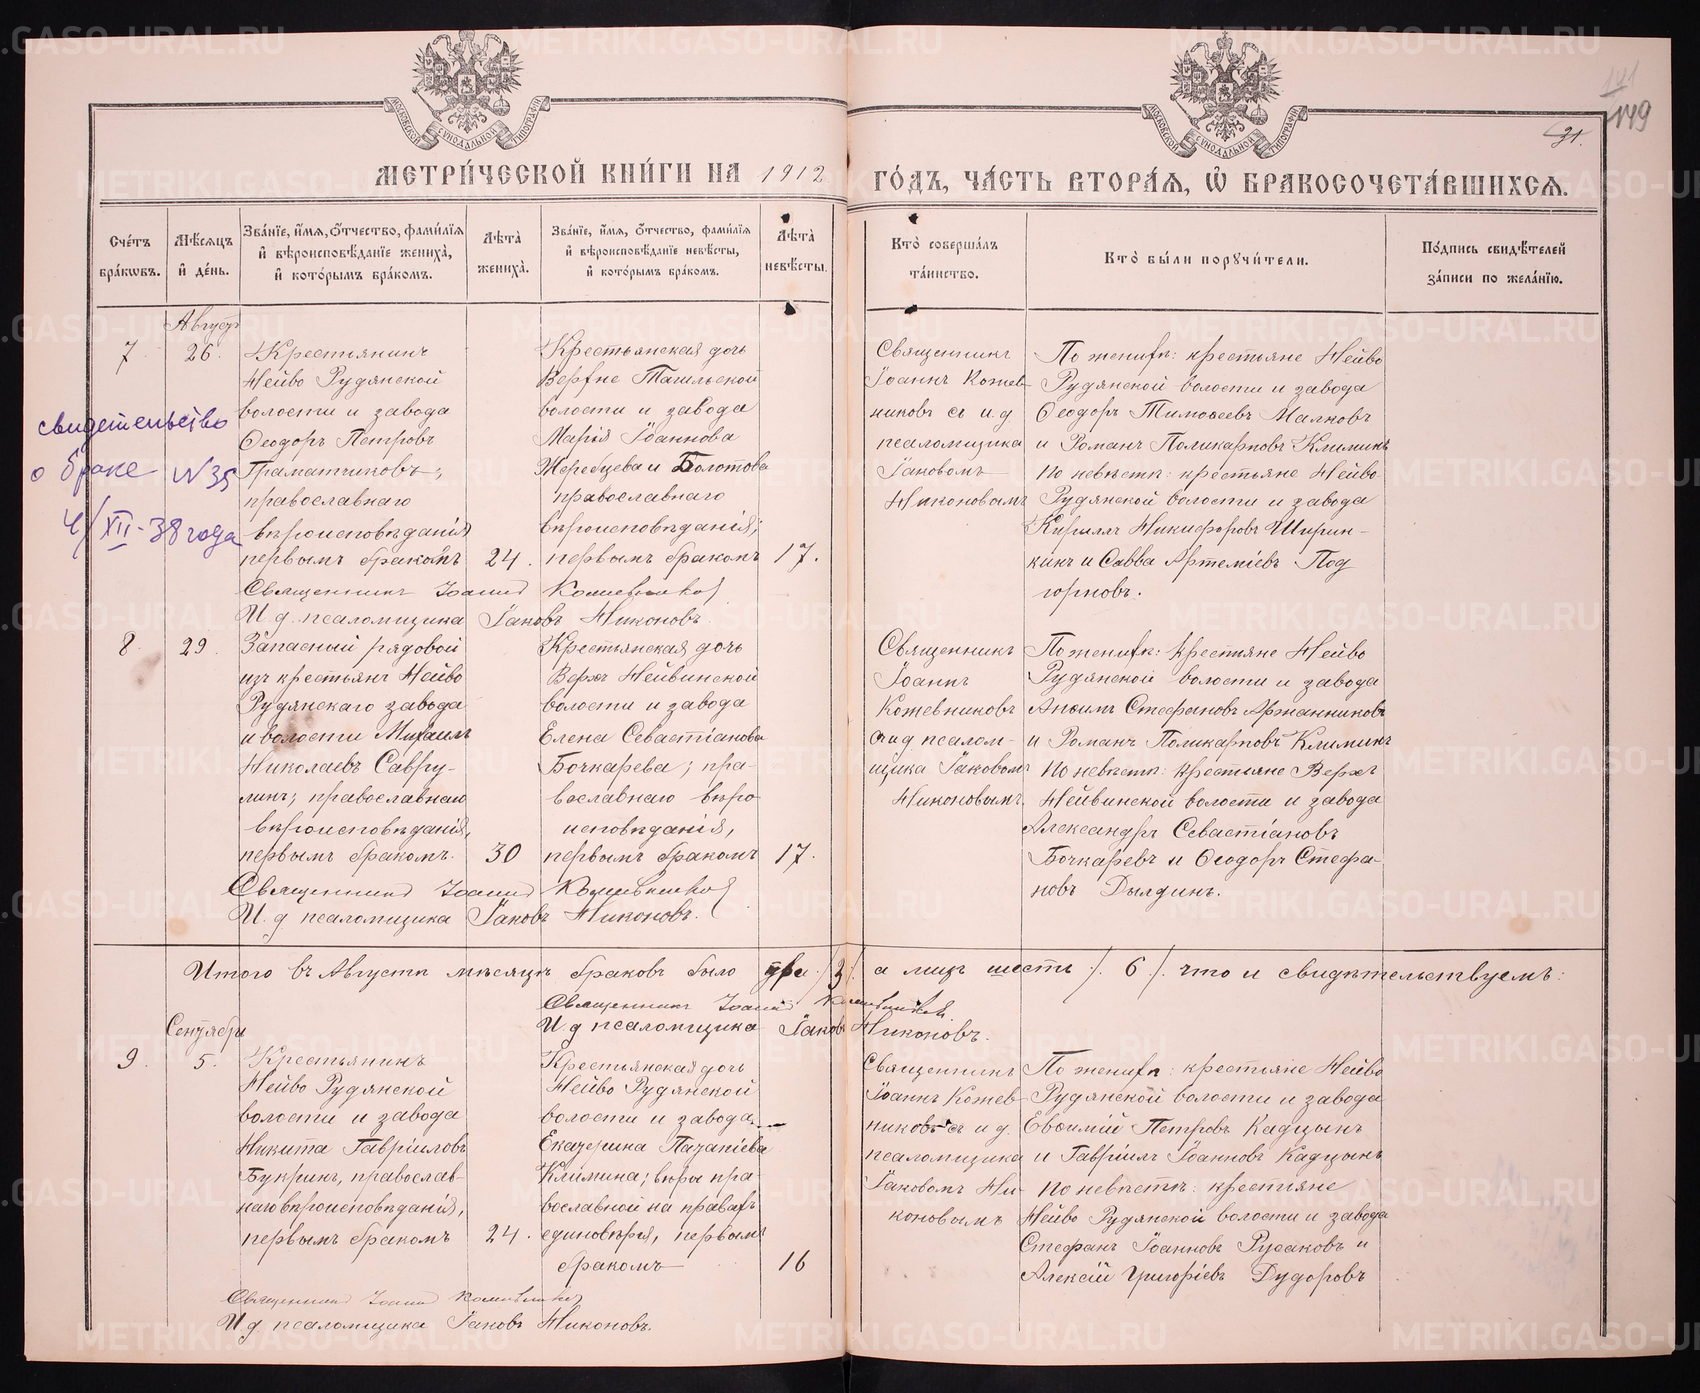 МЕТРИ́ЧЕСКОЙ КНИ́ГИ НА 1912
ГО́ДЪ, ЧА́СТЬ ВТОРА́Я, Ѡ БРАКОСОЧЕТА́ВШИХСЯ.
141
149
31.
Сче́тъ бра́кѡвъ.
Мѣ́сяцъ и҆ де́нь.
Зва́нїе, и҆́мя, ѻ҆́тчество, фами́лїя и҆ вѣроисповѣ́данїе жениха̀, и҆ кото́рымъ бра́комъ.
Лѣта̀ жениха̀.
Зва́нїе, и҆́мя, ѻ҆́тчество, фами́лїя и҆ вѣроисповѣ́данїе невѣ́сты, и҆ кото́рымъ бра́комъ.
Лѣта̀ невѣ́сты.
Кто̀ соверша́лъ та́инство.
Кто̀ бы́ли порꙋчи́тели.
По́дпись свидѣ́телей за́писи по жела́нїю.
Августъ
7. 26.
Крестьянинъ
Нейво Рудянской
волости и завода
Ѳеодоръ Петровъ
Граматчиковъ;
православнаго
вѣроисповѣданія
первымъ бракомъ
24.
Крестьянская дочь
Верхне Тагильской
волости и завода
Марія Іоаннова
Жеребцева и Болотова
православнаго
вѣроисповѣданія;
первымъ бракомъ
17.
Священникъ
Іоаннъ Кожев-
никовъ съ и.д.
псаломщика
Іаковомъ
Никоновымъ
По женихѣ: крестьяне Нейво
Рудянской волости и завода
Ѳеодоръ Тимоѳеевъ Малковъ
и Романъ Поликарповъ Климинъ
по невѣстѣ: крестьяне Нейво
Рудянской волости и завода
Кириллъ Никифоровъ Ширин-
кинъ и Савва Артеміевъ Под
горновъ.
свидетельство
о браке N 35
4/XII-38 года
Священникъ Іоаннъ Кожевниковъ
И.д. псаломщика Іаковъ Никоновъ
8. 29.
Запасный рядовой
изъ крестьянъ Нейво
Рудянскаго завода
и волости Михаилъ
Николаевъ Савру-
линъ; православнаго
вѣроисповѣданія,
первымъ бракомъ.
30
Крестьянская дочь
Верхъ Нейвинской
волости и завода
Елена Севастіанова
Бочкарева; пра-
вославнаго вѣро
исповѣданія,
первымъ бракомъ
17.
Священникъ
Іоаннъ
Кожевниковъ
съ и.д. псалом-
щика Іаковомъ
Никоновымъ.
По женихѣ: крестьяне Нейво
Рудянской волости и завода
Анѳимъ Стефановъ Аржанниковъ
и Романъ Поликарповъ Климинъ
по невѣстѣ: крестьяне Верхъ
Нейвинской волости и завода
Александръ Севастіановъ
Бочкаревъ и Ѳеодоръ Стефа-
новъ Дылдинъ.
Священникъ Іоаннъ Кожевниковъ
И.д. псаломщика Іаковъ Никоновъ.
Итого въ Августѣ мѣсяцѣ браковъ было три /3/ а лицъ шесть /6/. что и свидѣтельствуемъ:
Священникъ Іоаннъ Кожевниковъ
И д псаломщика Іаковъ Никоновъ.
Сентябрь
9. 5.
Крестьянинъ
Нейво Рудянской
волости и завода
Никита Гавріиловъ
Букринъ, православ-
наго вѣроисповѣданія,
первымъ бракомъ
24.
Крестьянская дочь
Нейво Рудянской
волости и завода
Екатерина
Климина; вѣры пра
вославной на правахъ
единовѣрія, первымъ
бракомъ
16
Священникъ
Іоаннъ Кожев-
никовъ съ и.д.
псаломщика
Іаковомъ Ни-
коновымъ
По женихѣ: крестьяне Нейво
Рудянской волости и завода
Евѳимій Петровъ Кадцынъ
и Гавріилъ Іоанновъ Кадцынъ
по невѣстѣ: крестьяне
Нейво Рудянской волости и завода
Стефанъ Іоанновъ Русаковъ и
Алексій Григоріевъ Дудоровъ
Священникъ Іоаннъ Кожевниковъ
И.д. псаломщика Іаковъ Никоновъ.
METRIKI.GASO-URAL.RU